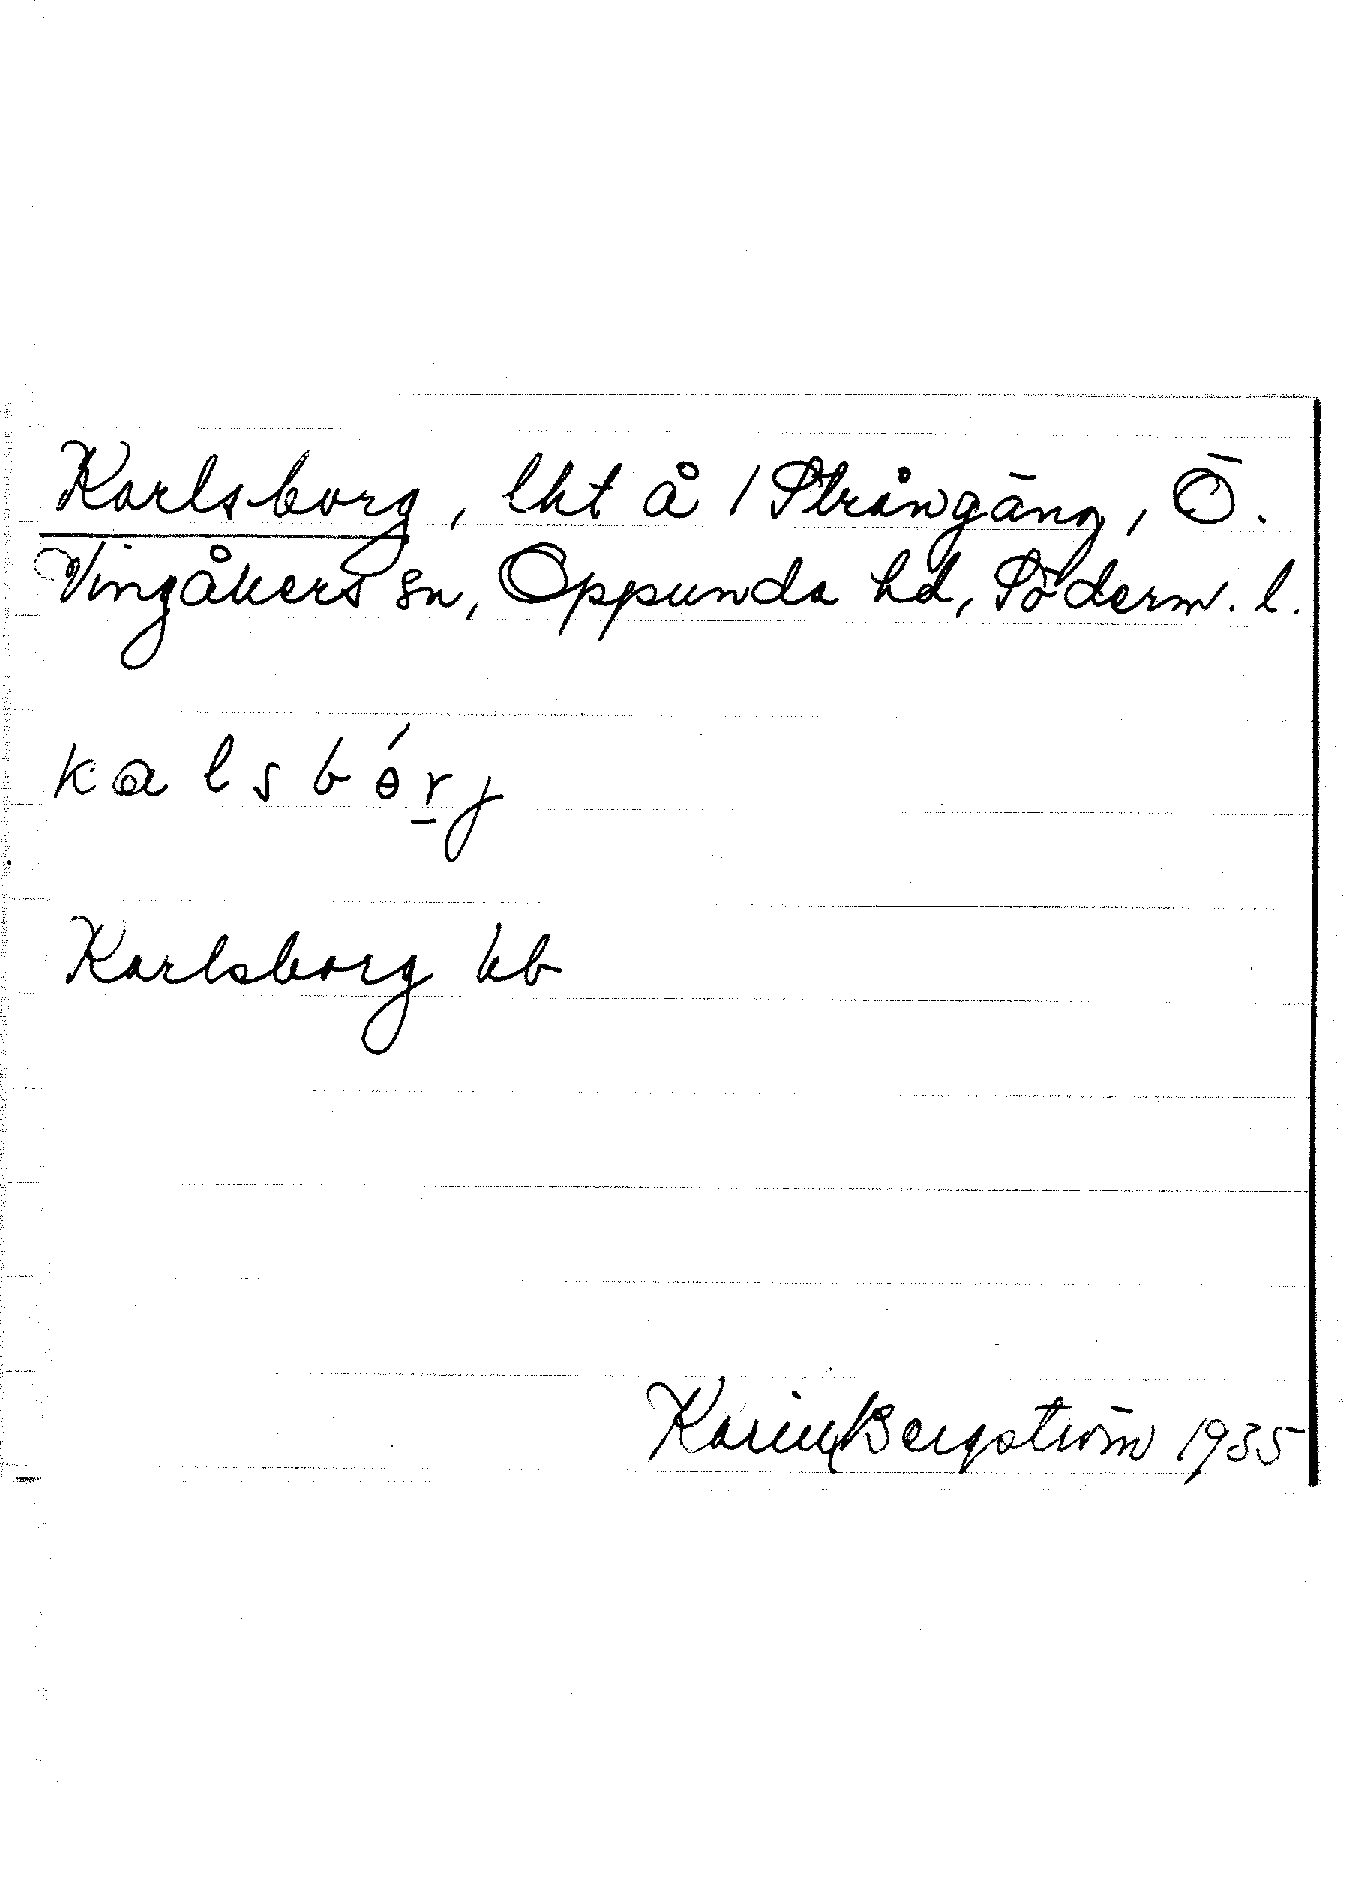 Karlsborg, lht å 1 Strångäng, Ö.
Vingåkers sn, Oppunda hd, Söderm. l.
kalsbɵ́rj
Karlsborg kb
Karin Bergström 1935